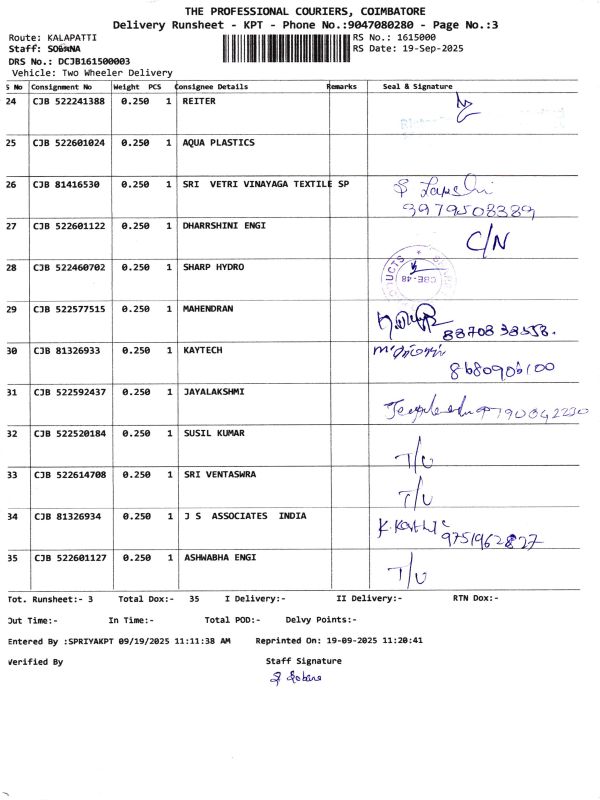 THE PROFESSIONAL COURIERS, COIMBATORE
Delivery Runsheet - KPT - Phone No.:9047080280 - Page No.:3
Route: KALAPATTI
RS No.: 1615000
Staff: SOBANA
RS Date: 19-Sep-2025
DRS No.: DCJB161500003
Vehicle: Two Wheeler Delivery
S No Consignment No Weight PCS Consignee Details Remarks Seal & Signature
24 CJB 522241388 0.250 1 REITER
25 CJB 522601024 0.250 1 AQUA PLASTICS
26 CJB 81416530 0.250 1 SRI VETRI VINAYAGA TEXTILE SP
27 CJB 522601122 0.250 1 DHARRSHINI ENGI C/N
28 CJB 522460702 0.250 1 SHARP HYDRO
CBE-48
29 CJB 522577515 0.250 1 MAHENDRAN
30 CJB 81326933 0.250 1 KAYTECH
8680906100
31 CJB 522592437 0.250 1 JAYALAKSHMI
32 CJB 522520184 0.250 1 SUSIL KUMAR T/U
33 CJB 522614708 0.250 1 SRI VENTASWRA T/U
34 CJB 81326934 0.250 1 J S ASSOCIATES INDIA
9751962827
35 CJB 522601127 0.250 1 ASHWABHA ENGI T/U
Tot. Runsheet:- 3 Total Dox:- 35 I Delivery:- II Delivery:- RTN Dox:-
Out Time:- In Time:- Total POD:- Delvy Points:-
Entered By :SPRIYAKPT 09/19/2025 11:11:38 AM Reprinted On: 19-09-2025 11:20:41
Verified By Staff Signature